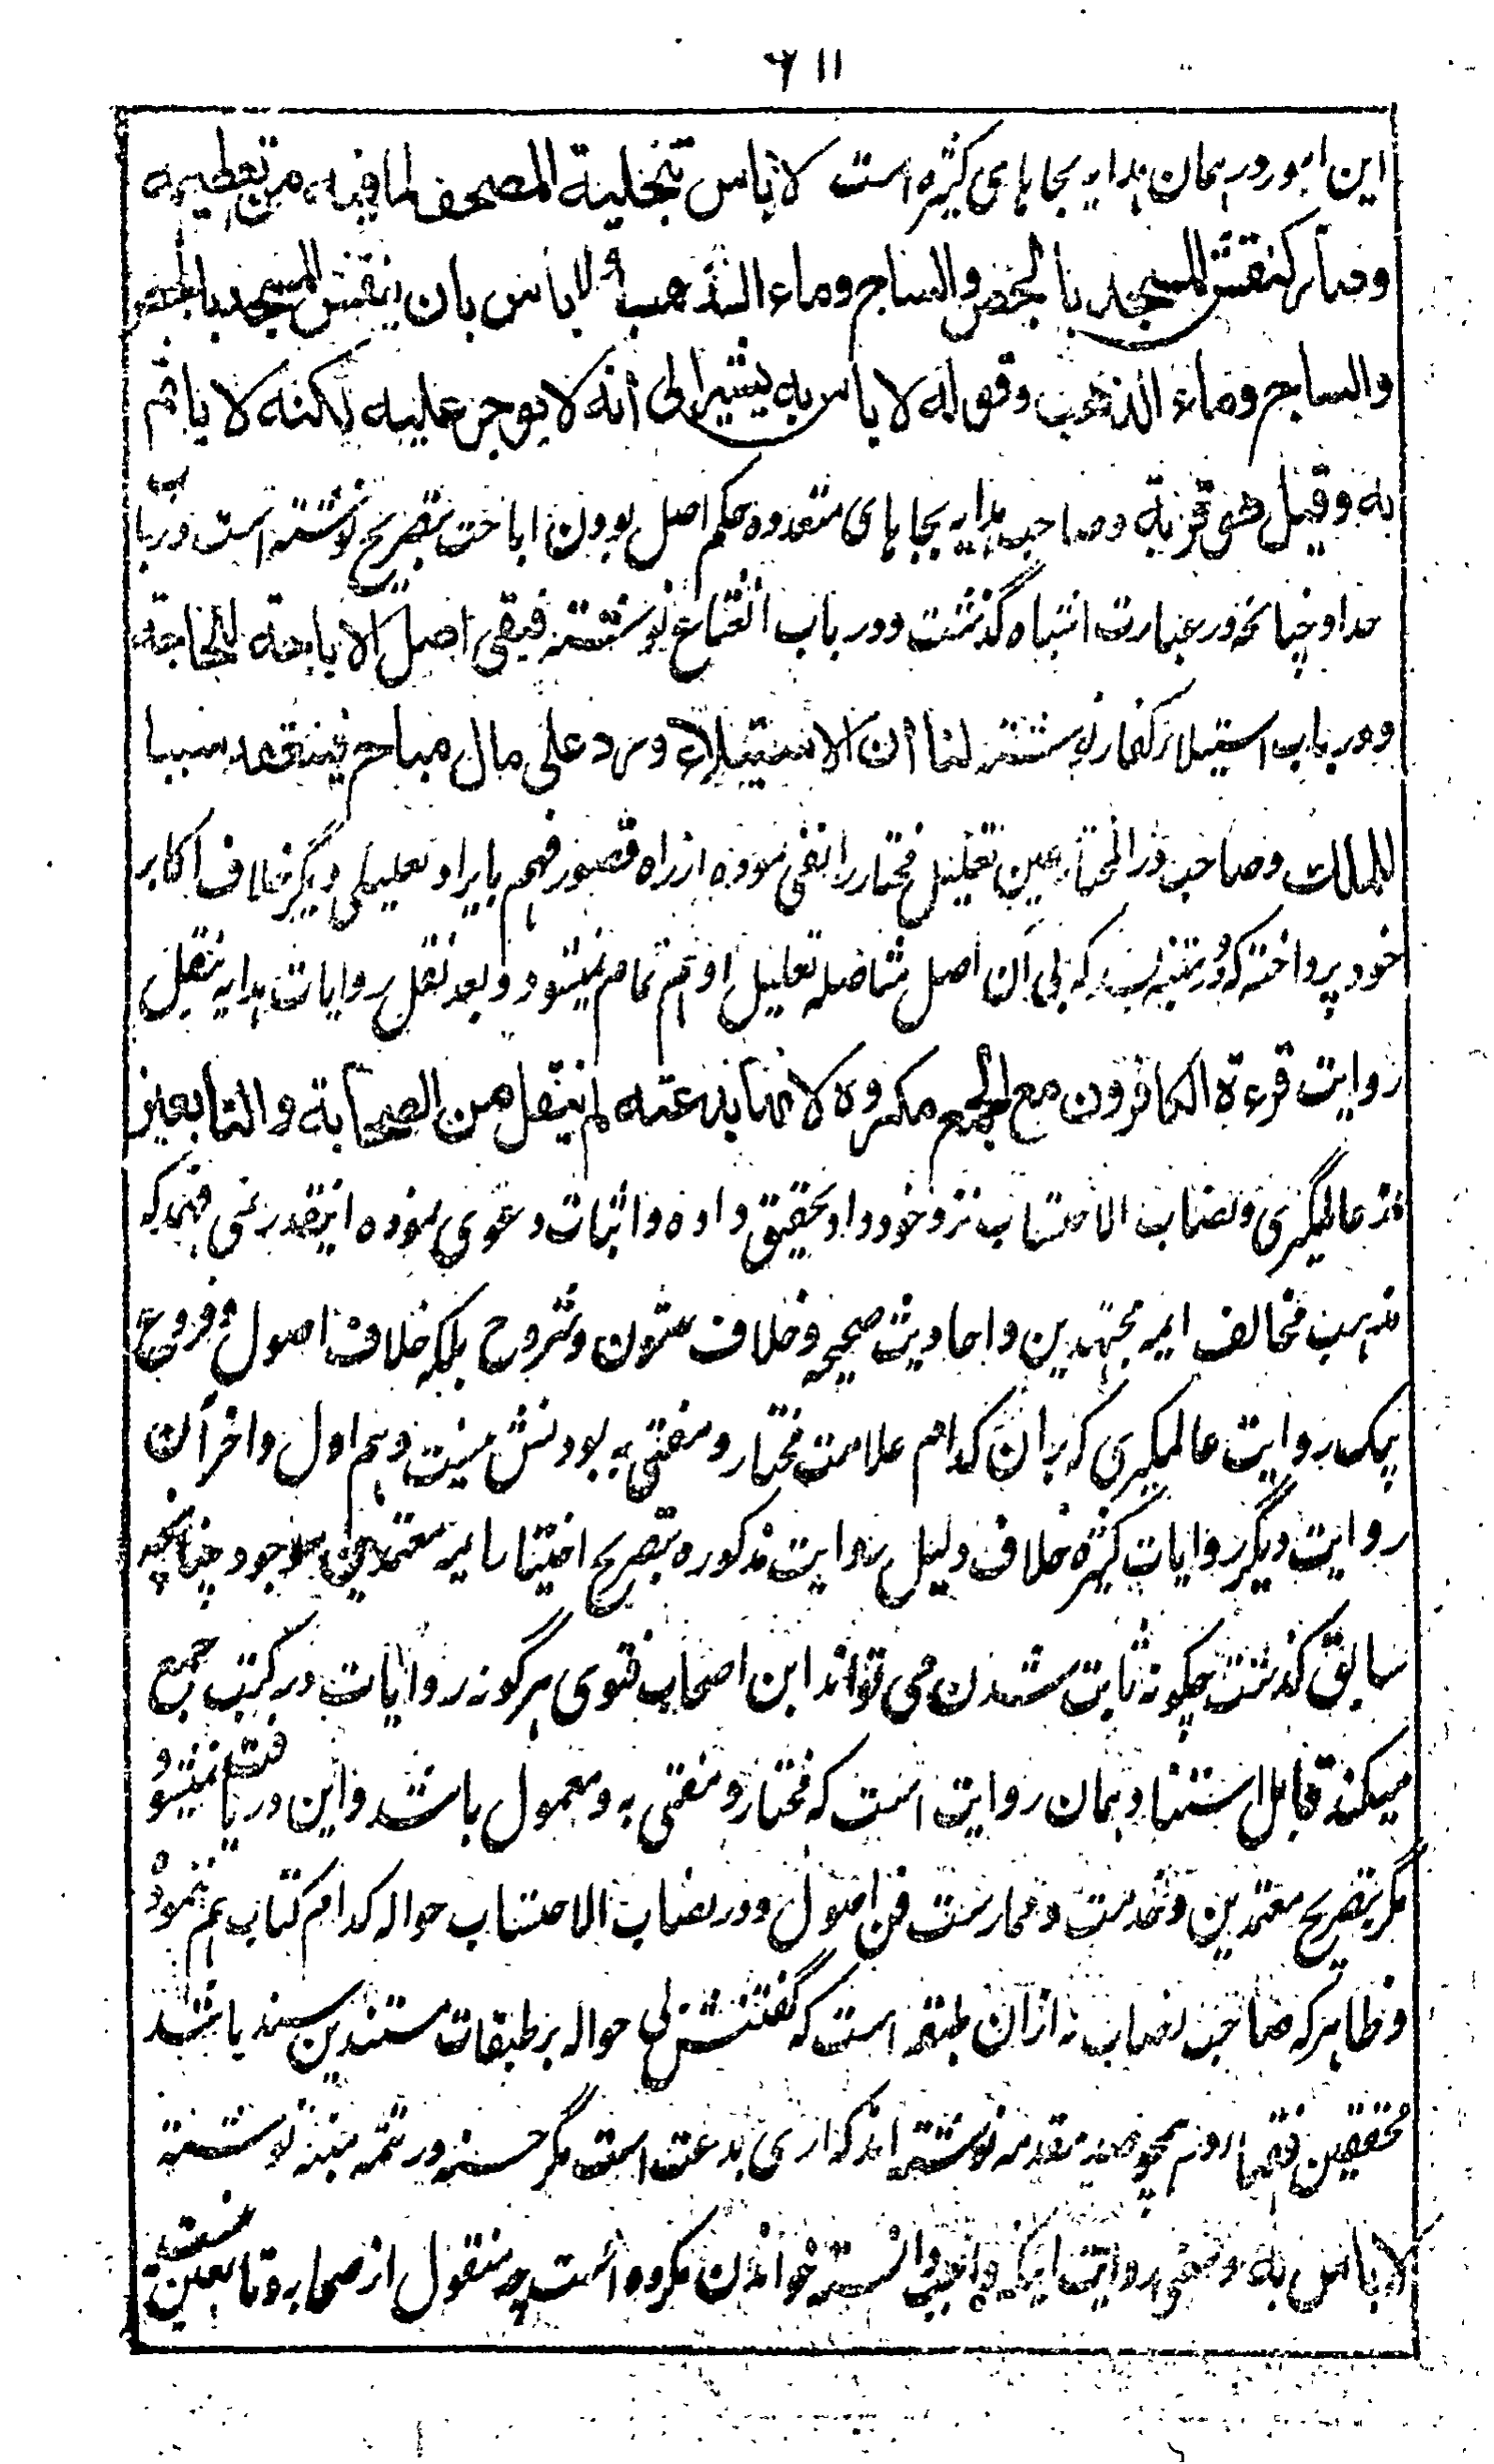 ۶۱۱
این امور در همان هدایه بجاهای کثیره است لا باس بتحلیة المصحف لما فیه من تعظیمه
وصار کنقش المسجد بالجص والساج وماء الذهب ولا بأس بان ینقش المسجد بالجص
والساج وماء الذهب وقوله لا باس به یشیر الی أنه لا یوجر علیه لکنه لا یاثم
به وقیل هو قربة وصاحب هدایه بجاهای متعدده حکم اصل بودن اباحت بتصریح نوشته است در باب
حداد چنانچه در عبارت اشباه گذشت ودر باب نوشته فبقی اصل الاباحة للحاجة
ودر باب استیلاء کفار نوشته لنا أن الاستیلاء ورد علی مال مباح فینعقد سببا
للملک وصاحب در المختار عین تعلیل مختار را نفی نموده از راه قصور فهم بایراد تعلیلی دیگر خلاف اکابر
خود پرداخته که بی آن اصل تعلیل او هم تمام نمیشود وبعد نقل روایات هدایه بنقل
روایت قرءة الکافرون مع الجمع مکروه لانها بدعته لم ینقل من الصحابة والتابعین
از عالمگیری ونصاب الاحتساب نزد خود داد تحقیق داده واثبات دعوی نموده اینقدر نمی فهمد که
مذهب مخالف ایمه مجتهدین واحادیث صحیحه وخلاف متون وشروح بلکه خلاف اصول وفروع
بیک روایت عالمگیری که بران کدام علامت مختار ومفتی به بودنش نیست وهم اول واخر آن
روایت دیگر روایات کثیره خلاف دلیل روایت مذکوره بتصریح اختیار ایمه معتمدین موجود چنانچه
سابق گذشت چگونه ثابت شدن می تواند این اصحاب فتوی هرگونه روایات در کتب جمع
میکنند قابل استناد همان روایت است که مختار ومفتی به ومعمول باشد واین دریافت نمیشود
مگر بتصریح معتمدین وخدمت وممارست فن اصول ودر نصاب الاحتساب حواله کدام کتاب هم ننموده
وظاهر که صاحب نصاب نه ازان طبقه است که گفتنش بی حواله بر طبقات مستندین سند باشد
محققین فقها همچو مقدمه نوشته اند که اری بدعت است مگر حسنه ودر تتمه منیه نوشته
لا باس به ومعنی روایت اینکه واجب دانسته خواندن مکروه است چه منقول از صحابه وتابعین نیست